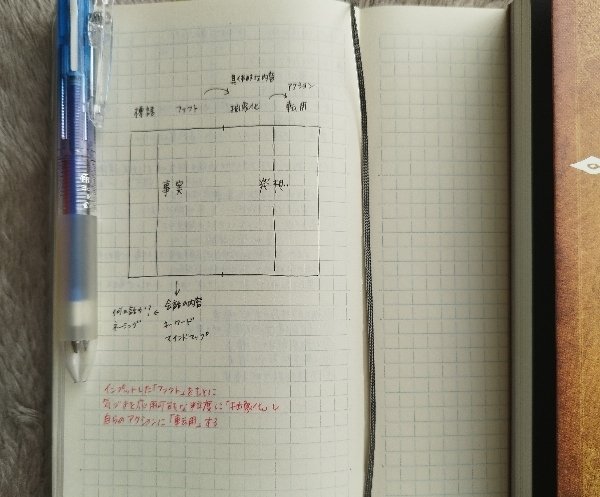 具体的な内容
アクション
標語 ファクト 抽象化 転用
事実 発想
会話の内容
何の話か?
キーワード
ネーミング
マインドマップ
インプットした「ファクト」をもとに
気づきを応用可能な粒度に「抽象化」し
自らのアクションに「転用」する